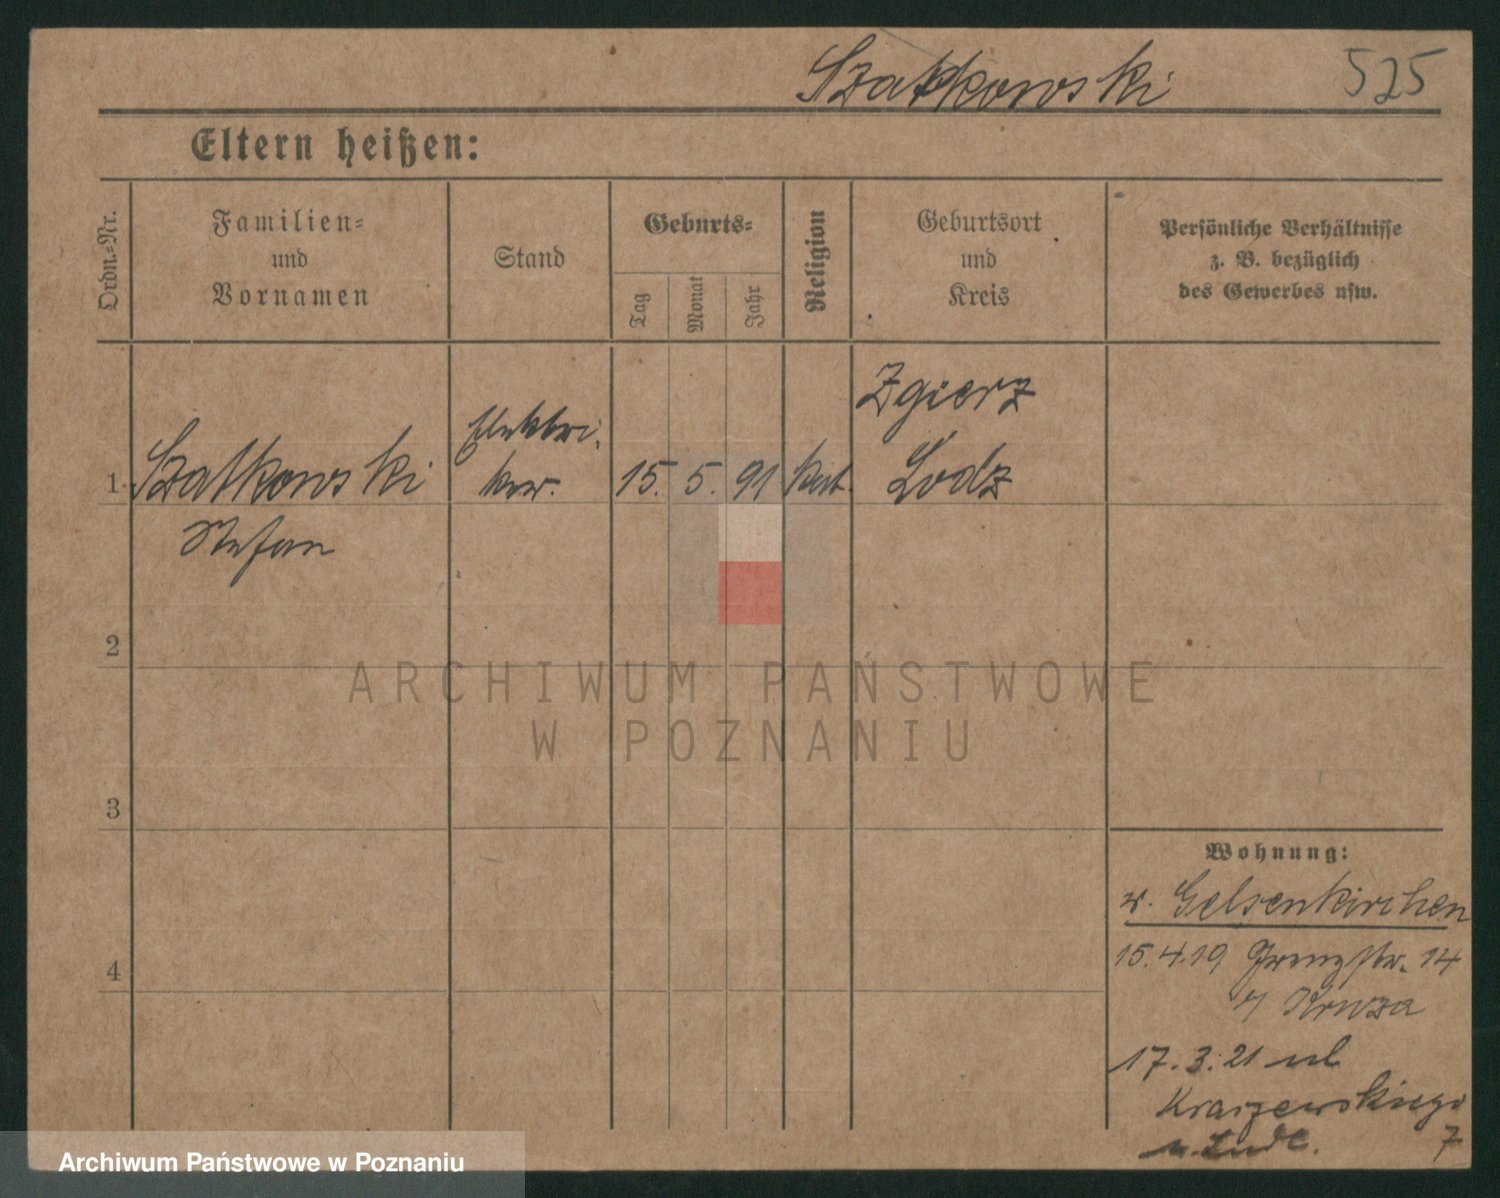 Szatkowski 525
Eltern heißen:
Ordn.-Nr.
Familien-
und
Vornamen
Stand
Geburts-
Tag
Monat
Jahr
Religion
Geburtsort
und
Kreis
Persönliche Verhältnisse
z. B. bezüglich
des Gewerbes usw.
Zgierz
Elektri.
1 Szatkowski ker. 15. 5. 91 kat. Łodz
Stefan
2
ARCHIWUM PAŃSTWOWE
W POZNANIU
3
Wohnung:
v. Gelsenkirchen
4
15.4.19 Grenzstr. 14
b/ Kruza
17.3.21 ul
Kraszewskiego
7
Archiwum Państwowe w Poznaniu